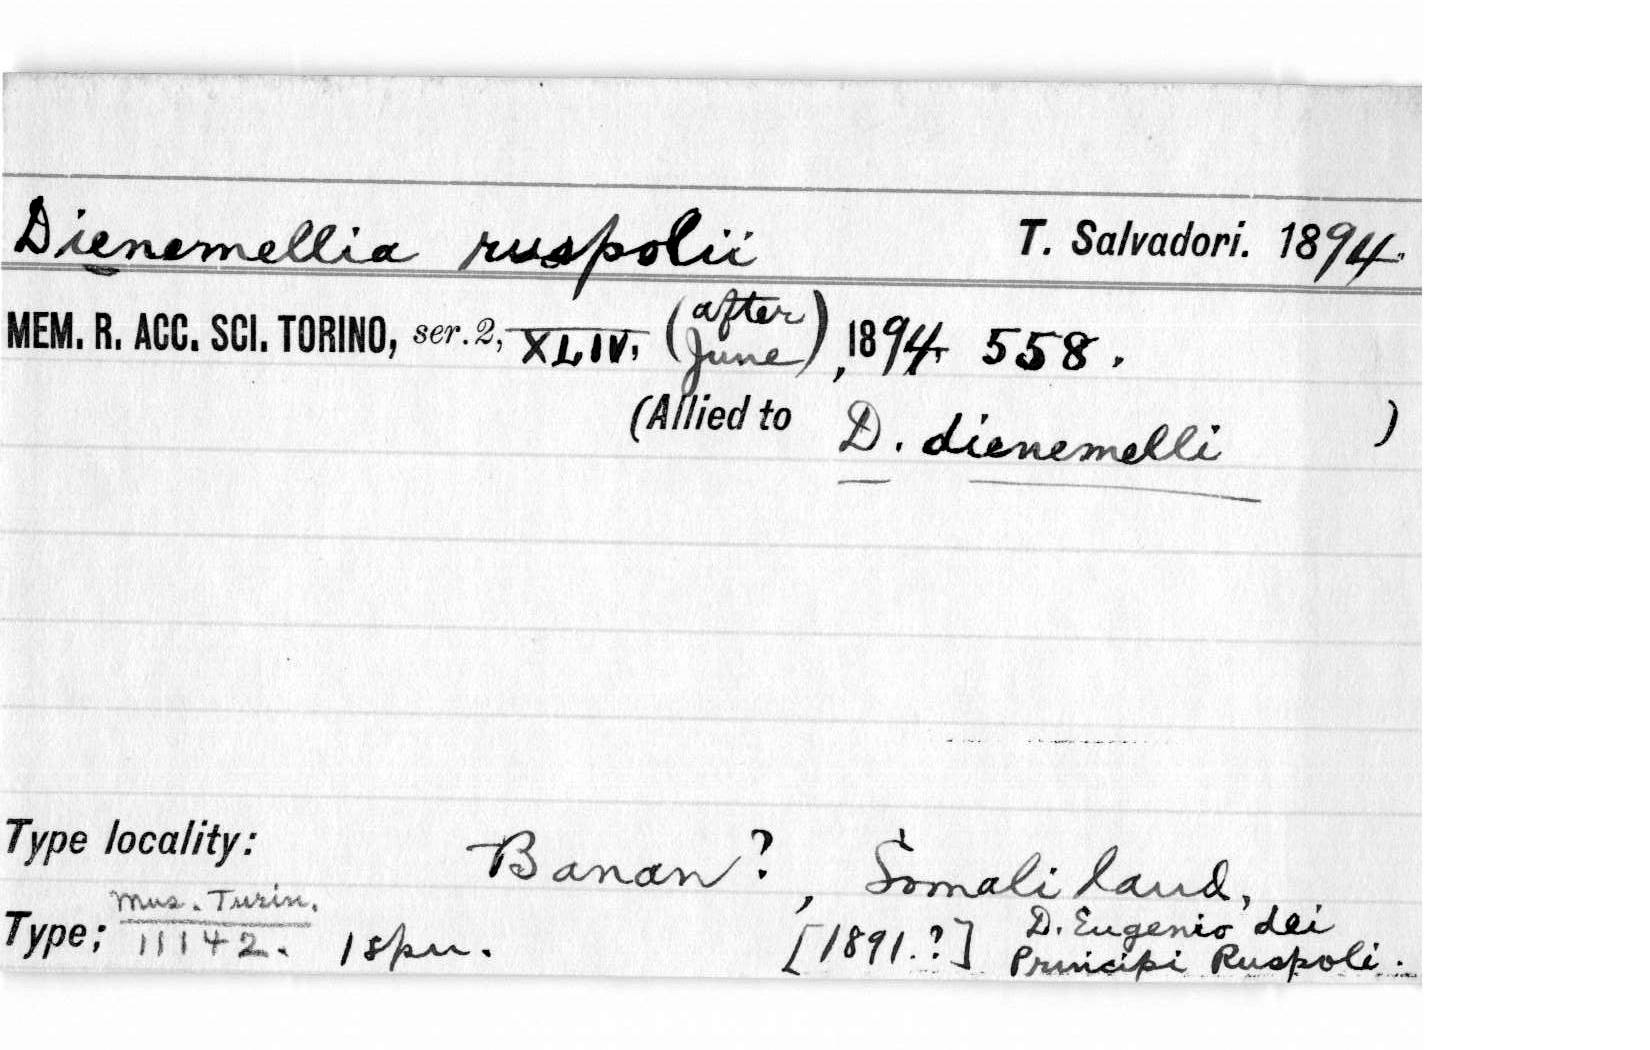 Dienemellia ruspolii T. Salvadori. 1894.
MEM. R. ACC. SCI. TORINO, ser. 2, XLIV, (after June), 1894, 558.
(Allied to D. dienemelli )
Type locality: Banan?, Somali land,
Type; Mus. Turin. 11142. 1 spn. [1891.?] D. Eugenio dei
Principi Ruspoli.